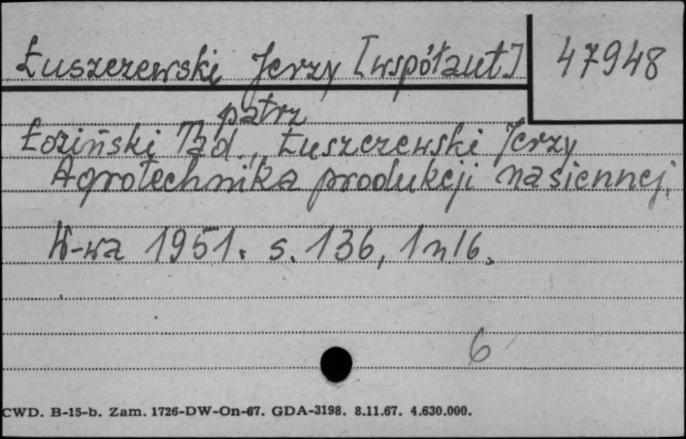 Łuszczewski Jerzy [współaut.]
47948
patrz
Łoziński Tad., Łuszczewski Jerzy
Agrotechnika produkcji nasiennej.
W-wa 1951. s. 136, 1 nlb.
6
CWD. B-15-b. Zam. 1726-DW-On-67. GDA-3198. 8.11.67. 4.630.000.